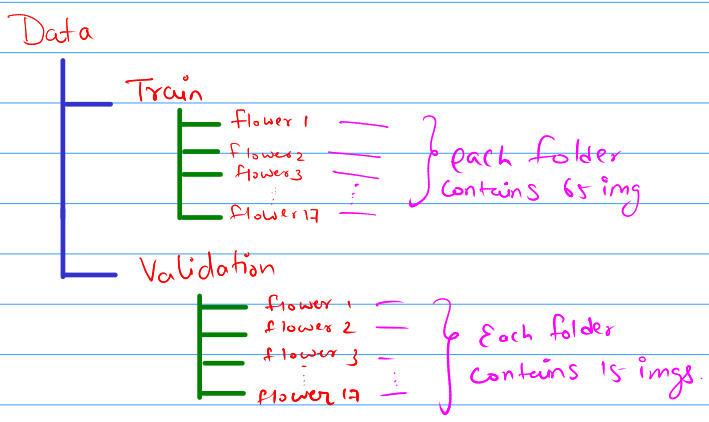 Data
Train
flower 1
flower 2
flower 3
flower 17
each folder
contains 65 img
Validation
flower 1
flower 2
flower 3
flower 17
Each folder
contains 15 imgs.